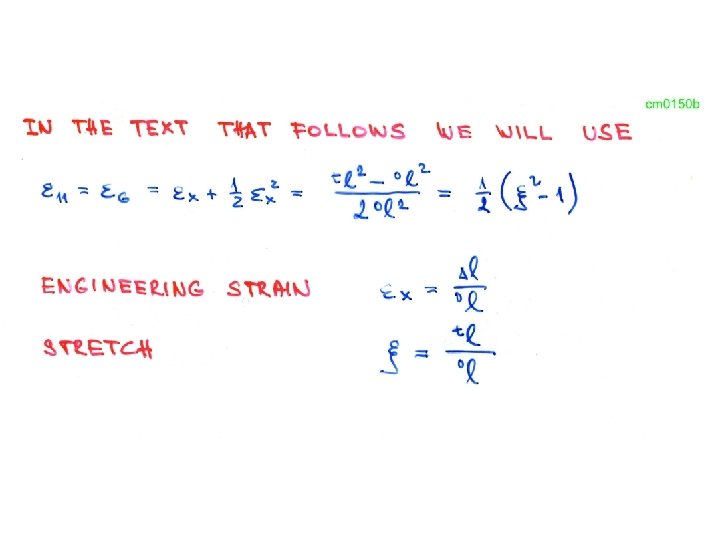 cm0150b
IN THE TEXT THAT FOLLOWS WE WILL USE
ε₁₁ = ε_G = ε_x + 1/2 ε_x² = (ᵗl² - ⁰l²) / (2 ⁰l²) = 1/2 (ξ² - 1)
ENGINEERING STRAIN ε_x = Δl / ⁰l
STRETCH ξ = ᵗl / ⁰l